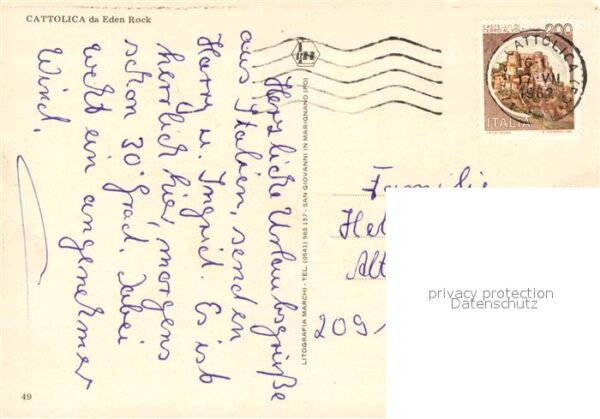 CATTOLICA da Eden Rock
Herzliche Urlaubsgrüße
aus Italien, senden
Harry u. Ingrid. Es ist
herrlich hier, morgens
schon 30° Grad. Dabei
weht ein angenehmer
Wind.
LITOGRAFIA MARCHI - TEL. (0541) 965 157 - SAN GIOVANNI IN MARIGNANO (FO)
CASTELLO DI
CERRO AL VOLTURNO
200
ITALIA
ATTOLICA
16
17 VII
1982
Familie
He
Alt
209
privacy protection
Datenschutz
49